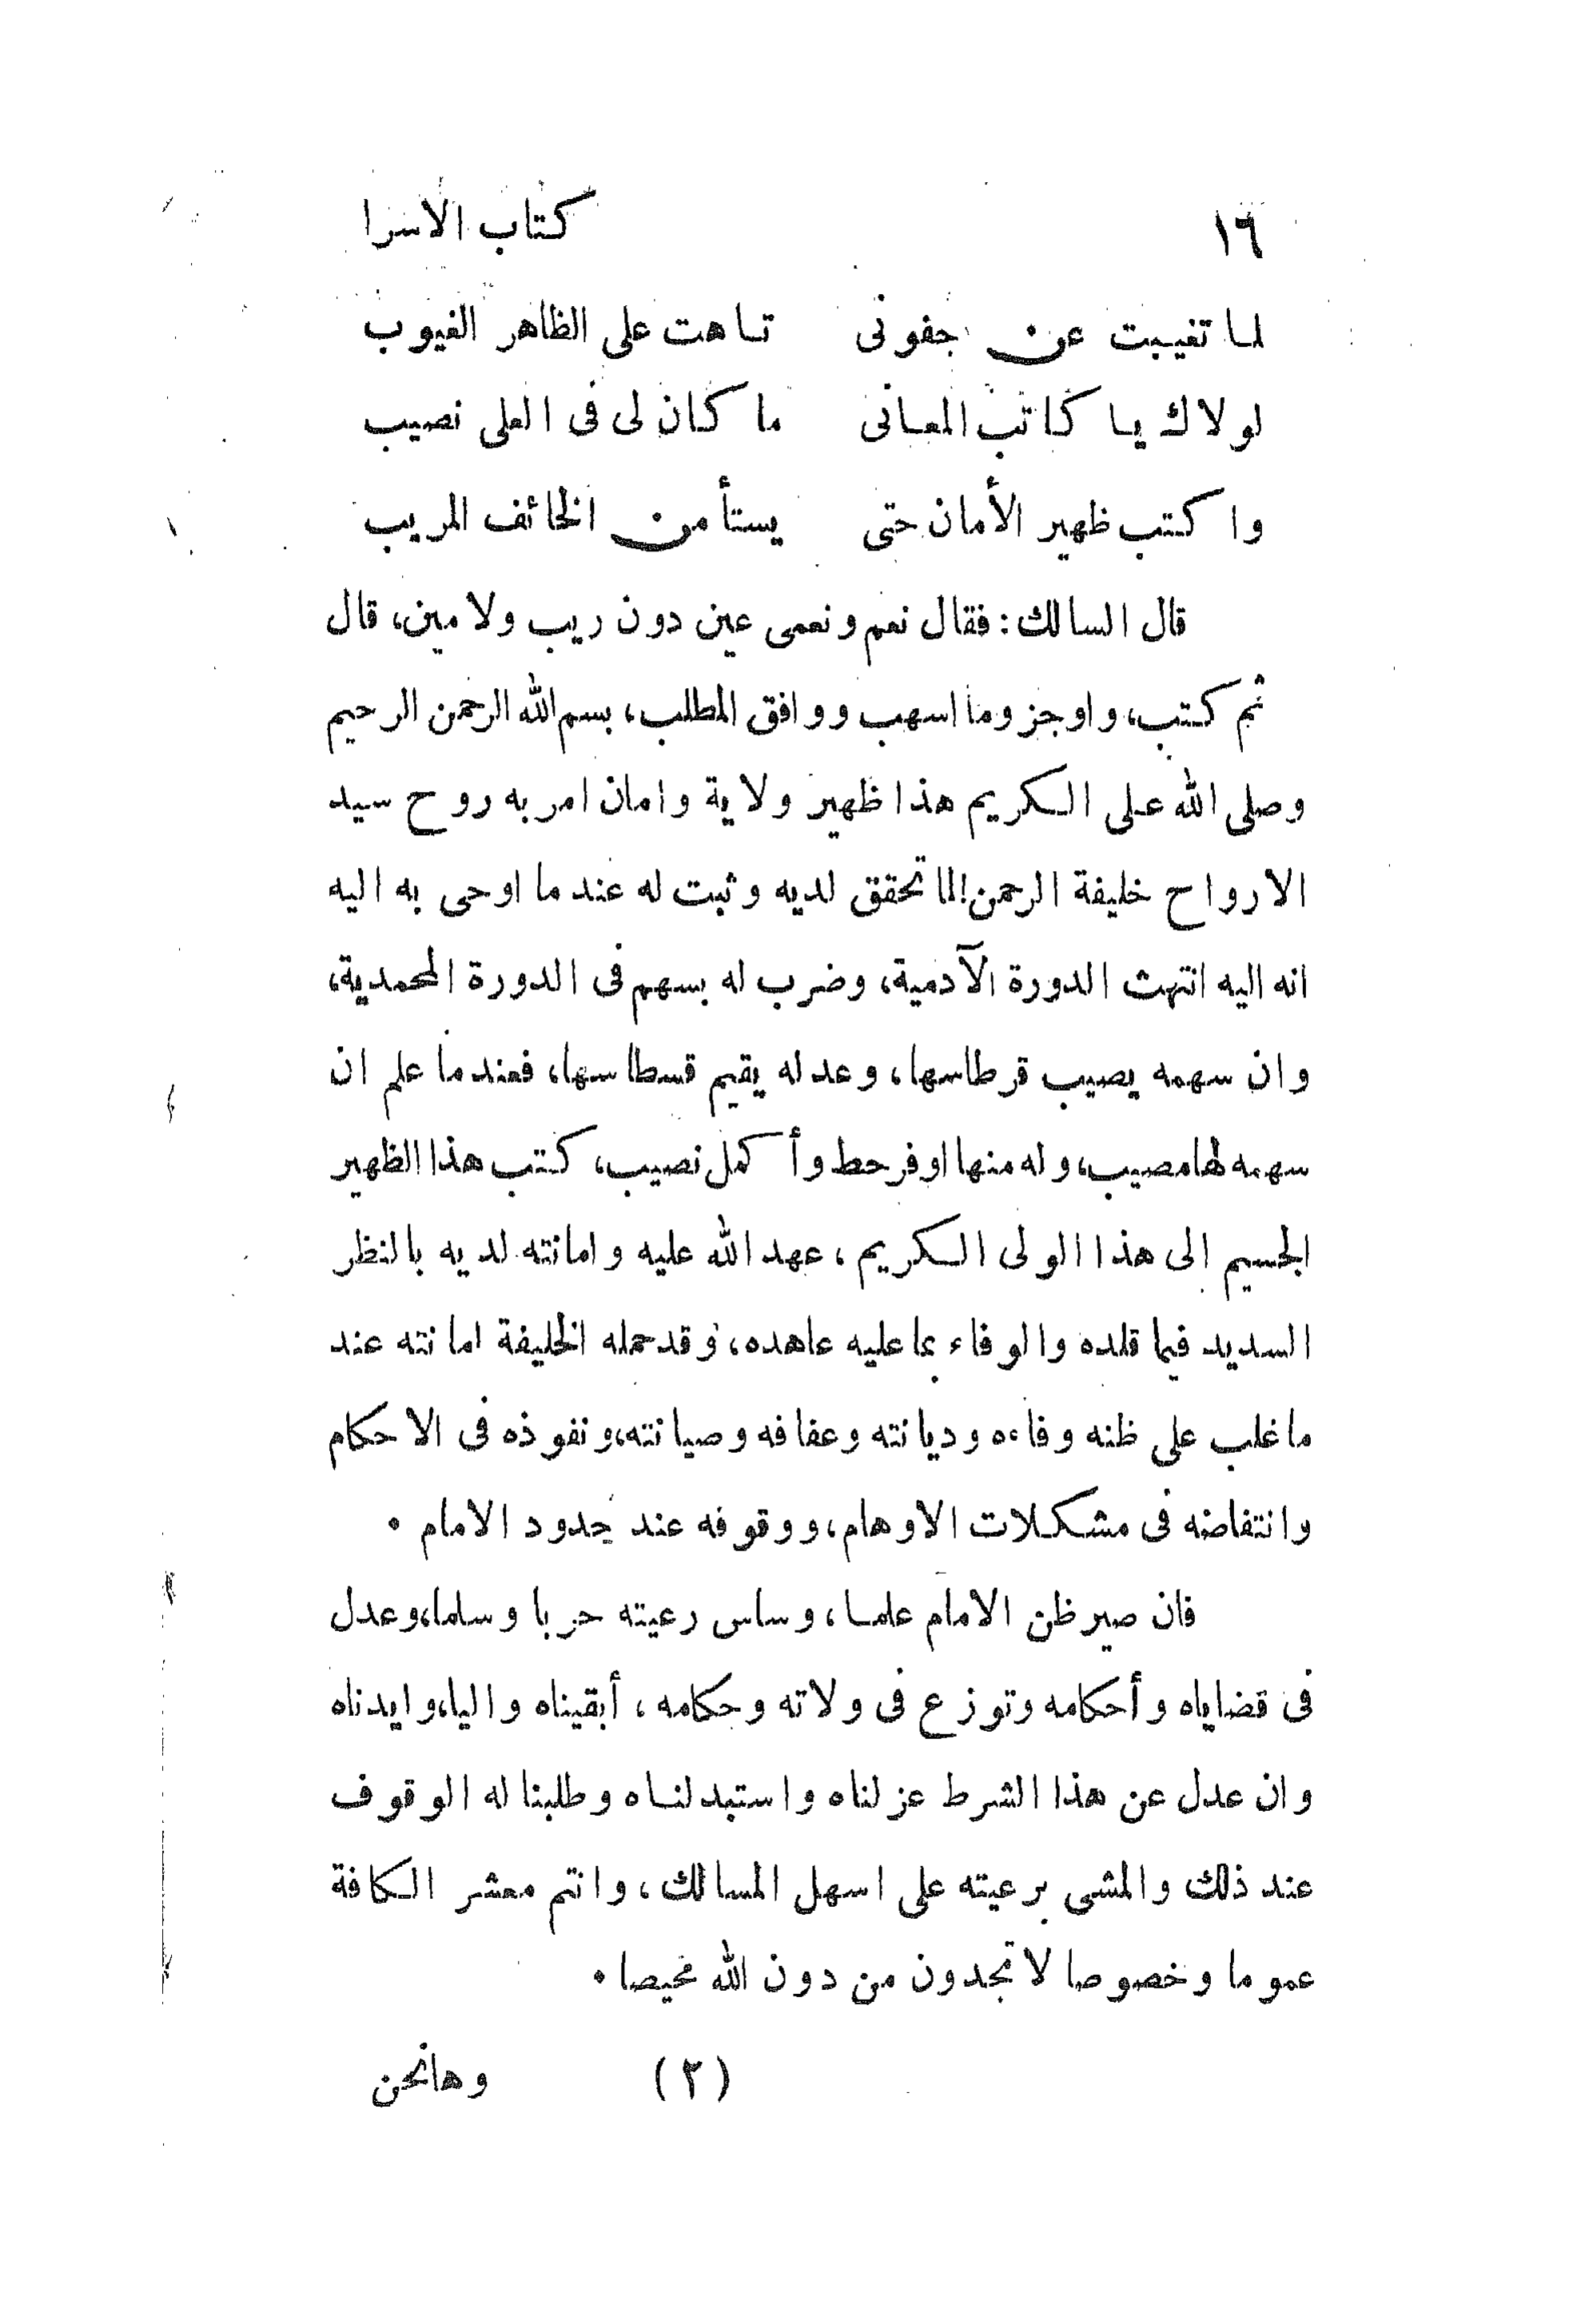 ١٦ كتاب الاسرا
لما تغيبت عن جفونى تاهت على الظاهر الغيوب
لولاك يا كاتب المعانى ما كان لى فى العلى نصيب
واكتب ظهير الأمان حتى يستأمن الخائف المريب
قال السالك: فقال نعم ونعمى عين دون ريب ولا مين، قال
ثم كتب، واوجز وما اسهب ووافق المطلب، بسم الله الرحمن الرحيم
وصلى الله على الكريم هذا ظهير ولاية وامان امر به روح سيد
الارواح خليفة الرحمن! لما تحقق لديه وثبت له عند ما اوحى به اليه
انه اليه انتهت الدورة الآدمية، وضرب له بسهم فى الدورة المحمدية،
وان سهمه يصيب قرطاسها، وعدله يقيم قسطاسها، فعندما علم ان
سهمه لها مصيب، وله منها اوفر حط وأكمل نصيب، كتب هذا الظهير
الجسيم الى هذا الولى الكريم، عهد الله عليه وامانته لديه بالنظر
السديد فيما قلده والوفاء بما عليه عاهده، وقد حمله الخليفة امانته عند
ما غلب على ظنه وفاءه وديانته وعفافه وصيانته، ونفوذه فى الاحكام
وانتفاضه فى مشكلات الاوهام، ووقوفه عند حدود الامام .
فان صير ظن الامام علما، وساس رعيته حربا وسلما، وعدل
فى قضاياه وأحكامه وتوزع فى ولاته وحكامه، أبقيناه واليا، وايدناه
وان عدل عن هذا الشرط عزلناه واستبدلناه وطلبنا له الوقوف
عند ذلك والمشى برعيته على اسهل المسالك، وانتم معشر الكافة
عموما وخصوصا لا تجدون من دون الله محيصا .
(٢) وهانحن